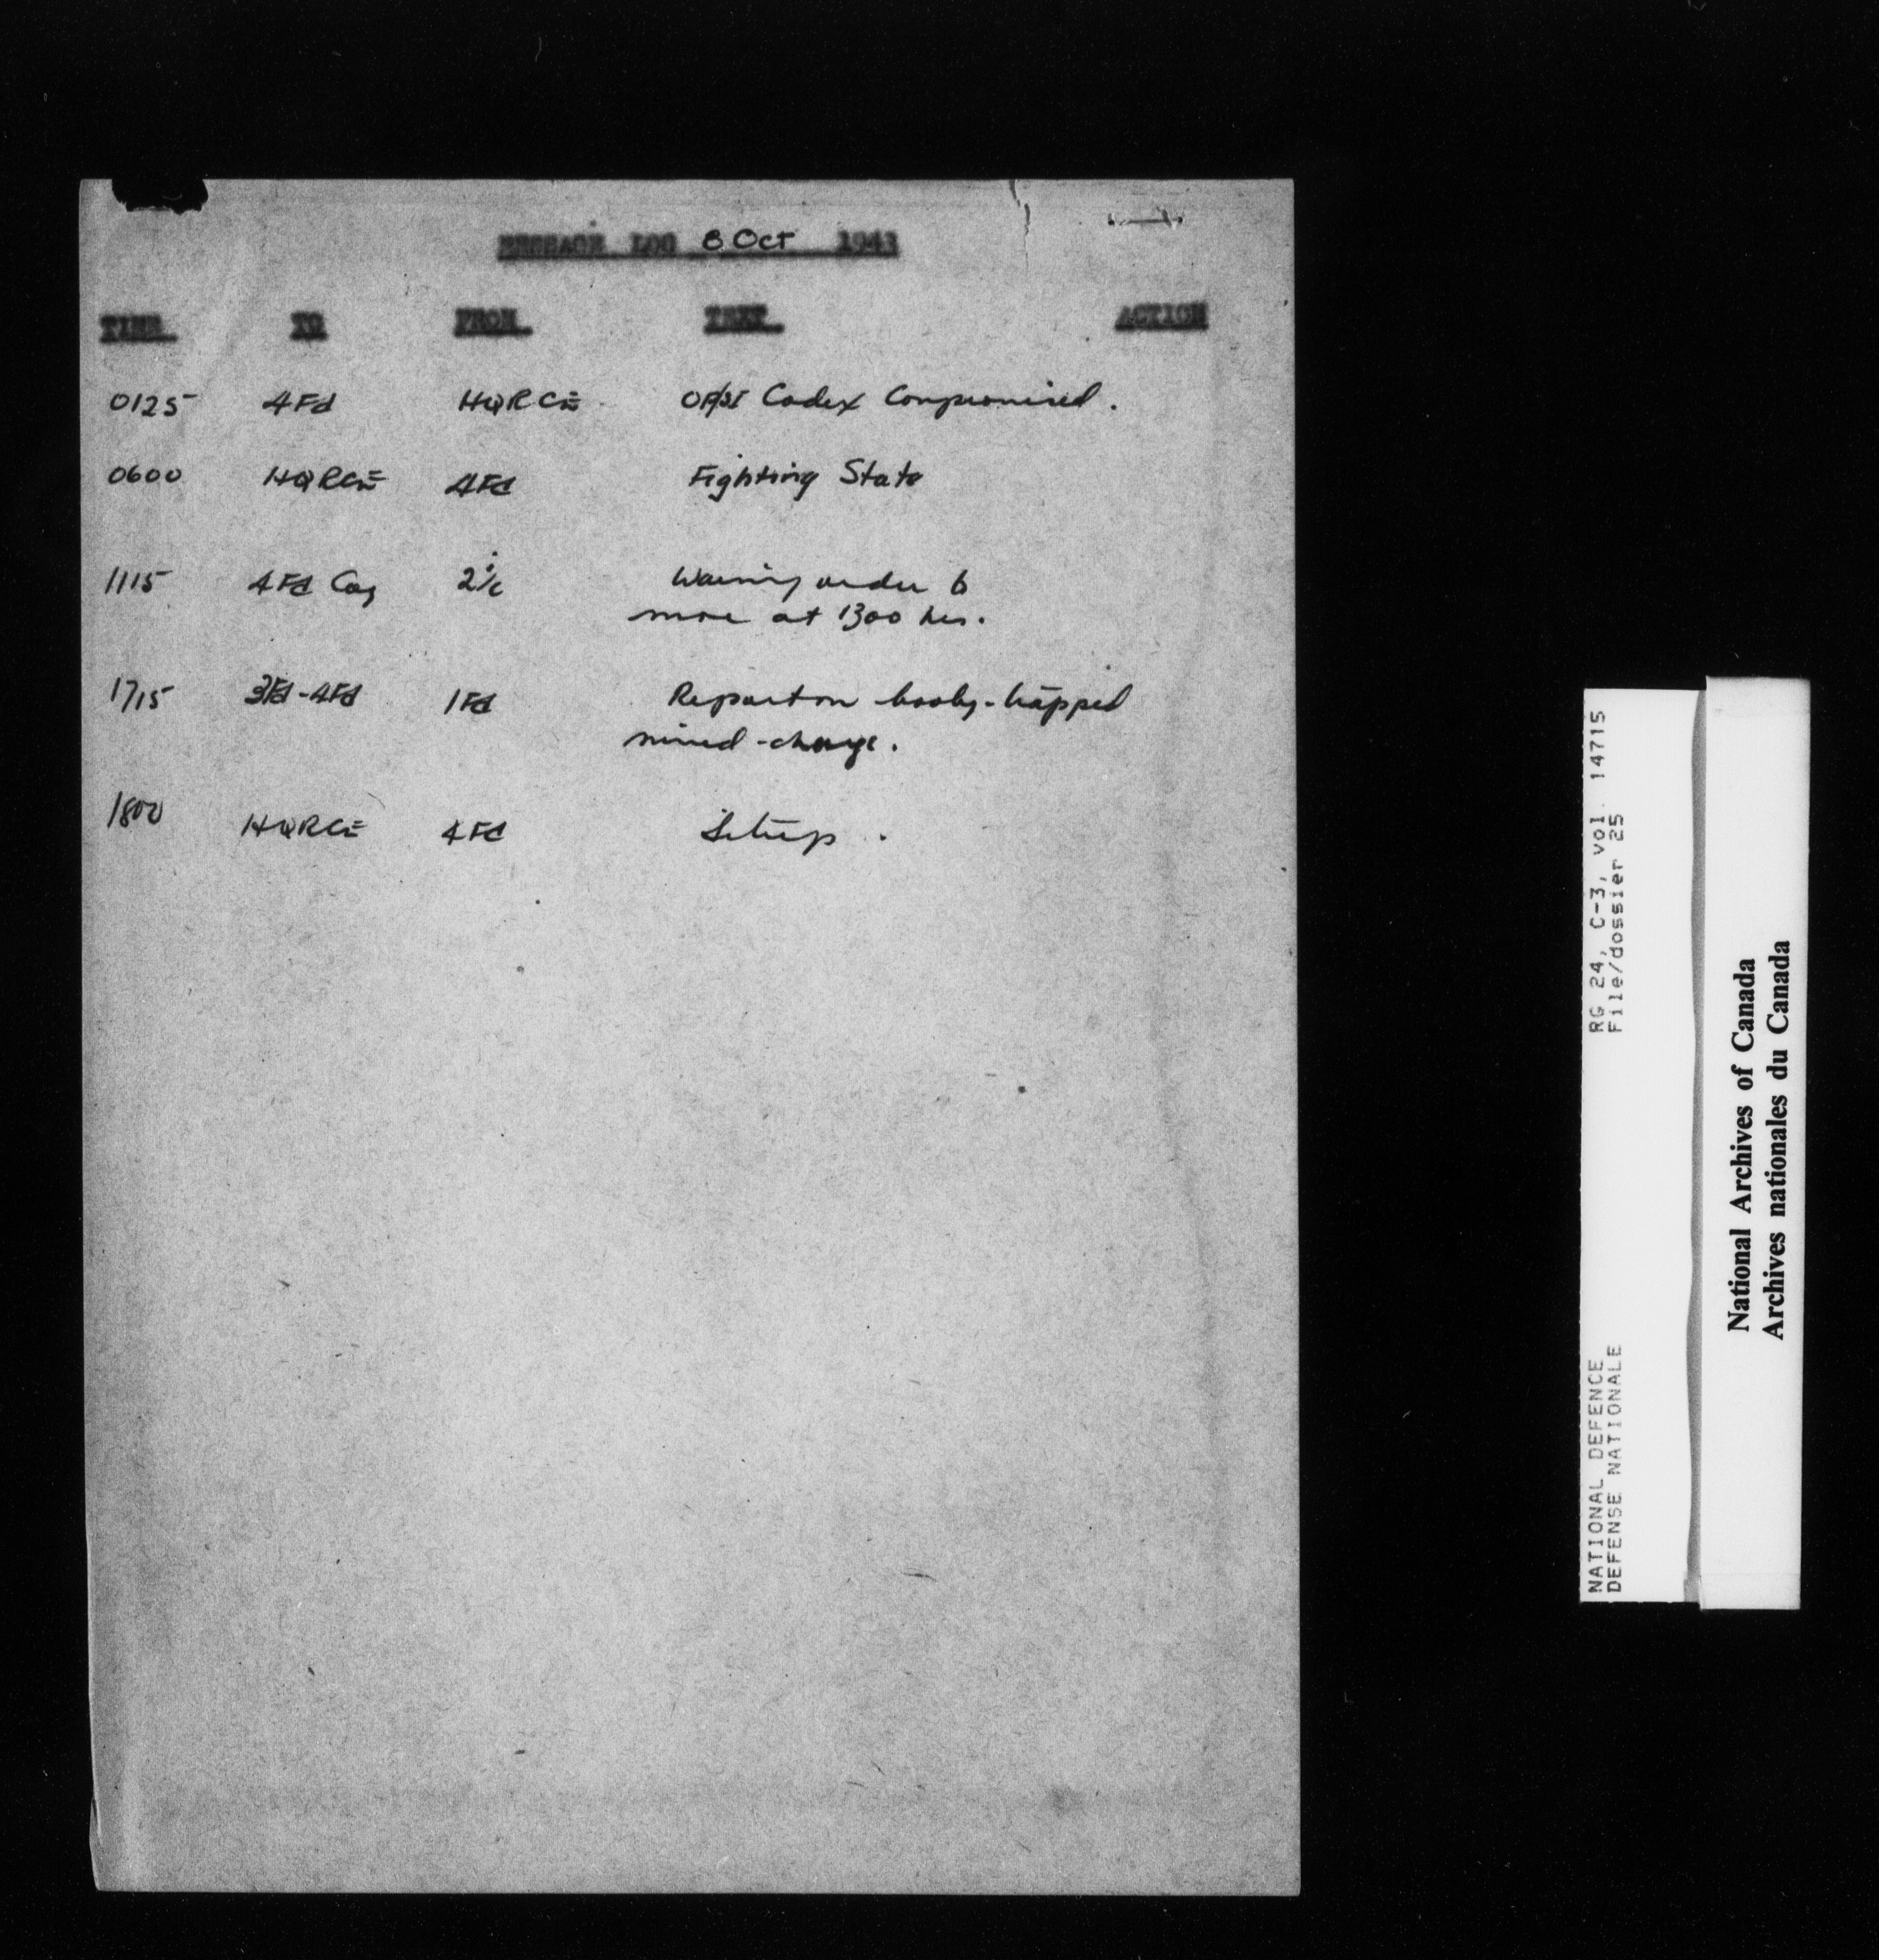 MESSAGE LOG 8 Oct 1943
TIME TO FROM TEXT ACTION
0125 4 Fd HQRCE Codex Compromised.
0600 HQRCE 4 Fd Fighting State
1115 4 Fd Coy 2i/c Warning order to
move at 1300 hrs.
1715 3Fd-4Fd 1 Fd Report on booby-trapped
mined-charge.
1800 HQRCE 4 Fd Sitrep.
RG 24, C-3, vol. 14715
File/dossier 25
NATIONAL DEFENCE
DEFENSE NATIONALE
National Archives of Canada
Archives nationales du Canada